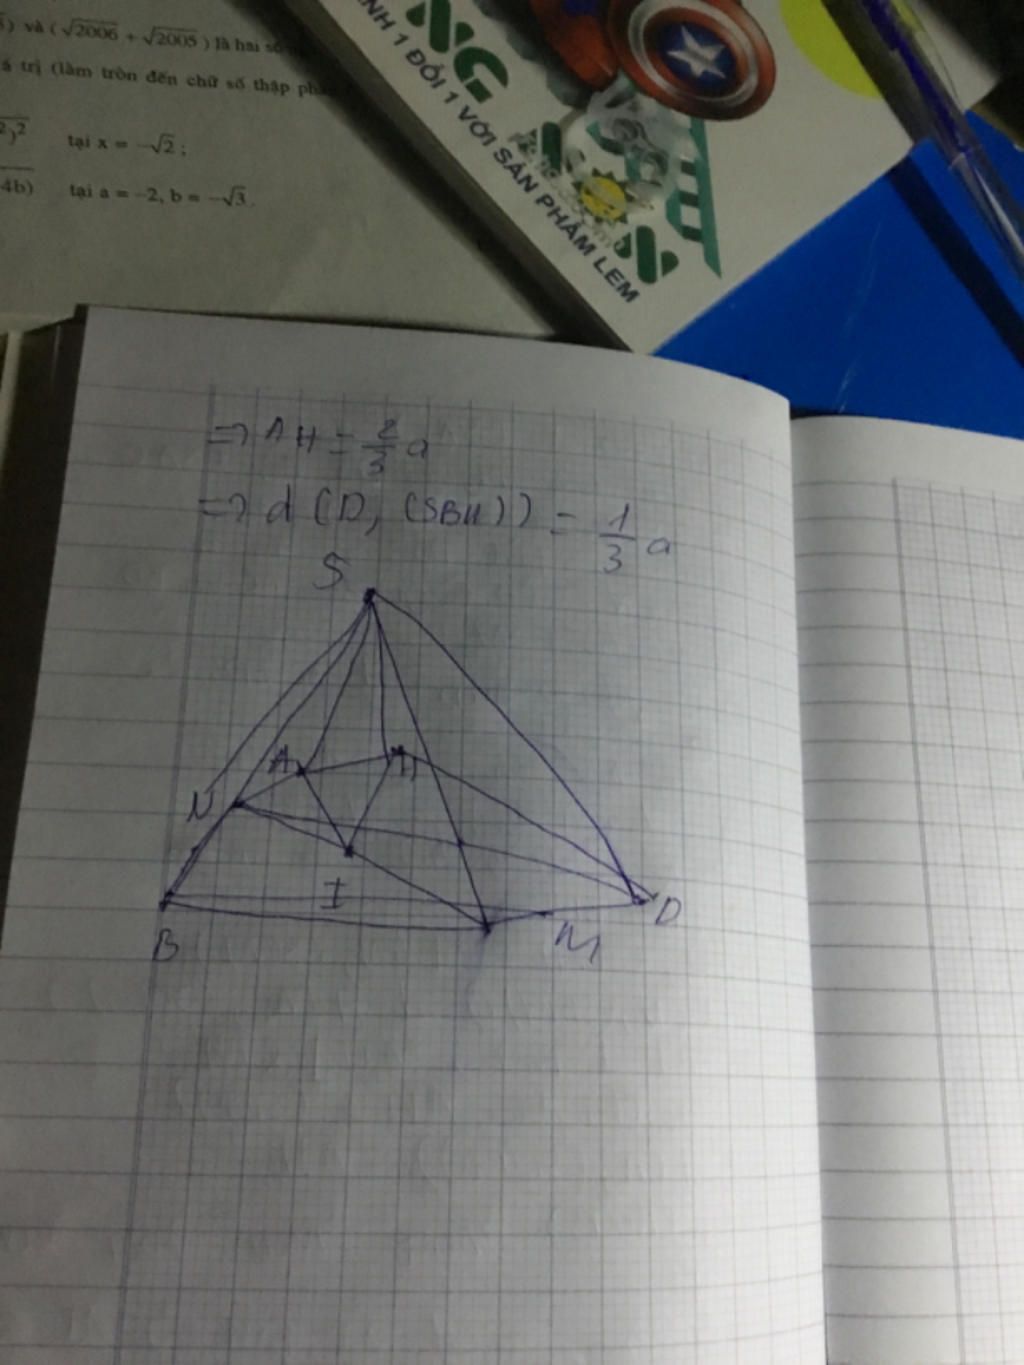 ) và (√2006 + √2005) là hai số
á trị (làm tròn đến chữ số thập
²)² tại x = -√2;
4b) tại a = -2, b = -√3.
NG
ÀNH 1 ĐỔI 1 VỚI SẢN PHẨM LEM
=> AH = 2/3 a
=> d (D, (SBH)) = 1/3 a
S
A H
N
I
B M D